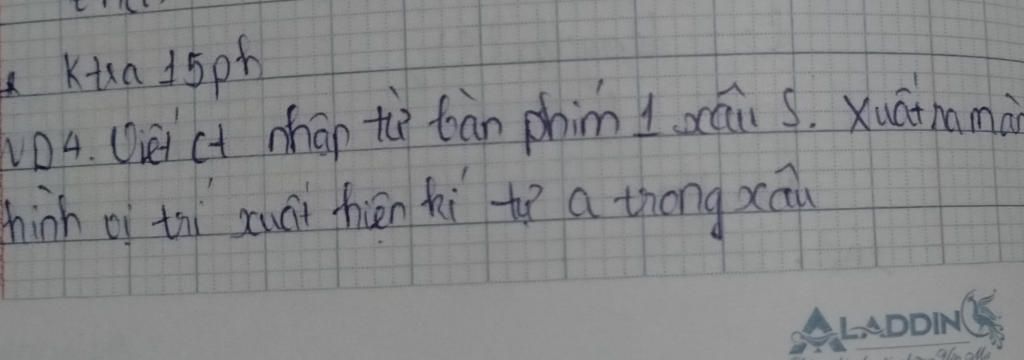 Ktra 15ph
VD4. Viết ct nhập từ bàn phím 1 xâu S. Xuất ra màn
hình vị trí xuất hiện kí tự a trong xâu
ALADDIN